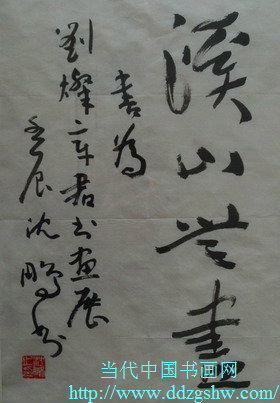 溪山無盡
書為
劉燦章君书畫展
壬辰沈鵬书
当代中国书画网
http://www.ddzgshw.com